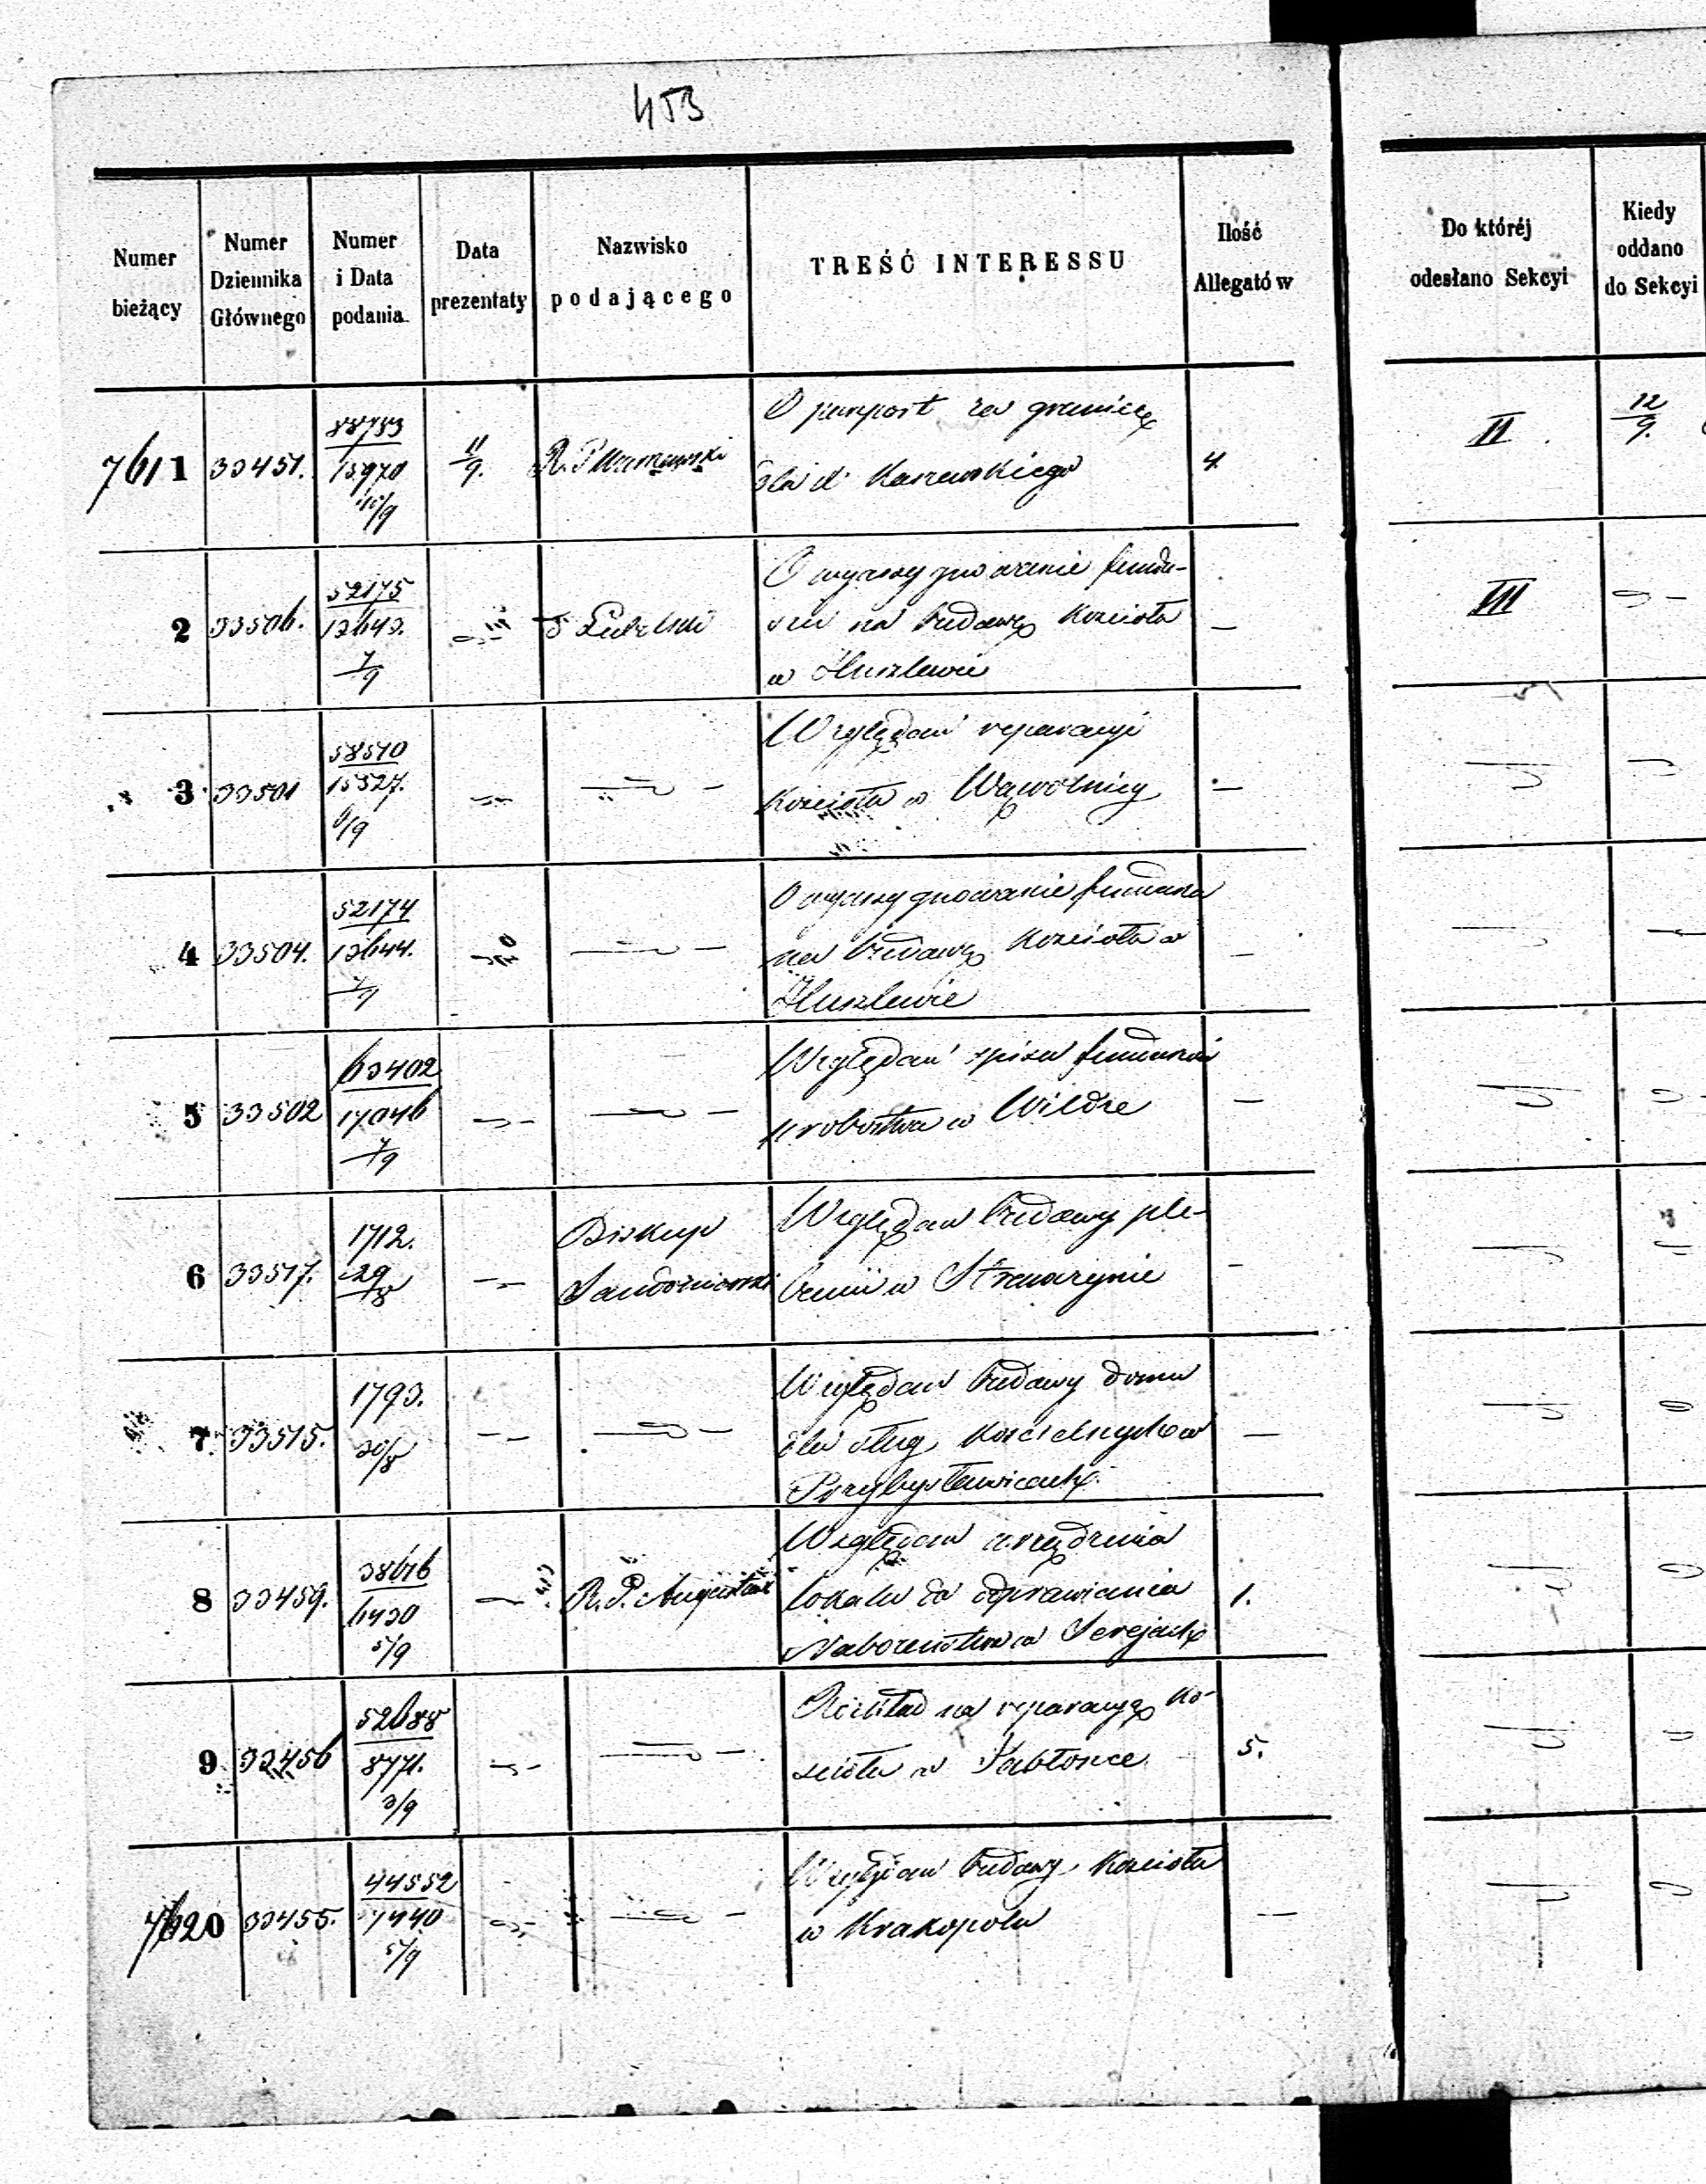 453
Numer bieżący
Numer Dziennika Głównego
Numer i Data podania
Data prezentaty
Nazwisko podającego
TREŚĆ INTERESSU
Ilość Allegatów
Do któréj odesłano Sekcyi
Kiedy oddano do Sekcyi
7611 33451. 88783 15970 10/9 11/9. R. P. Warszawski
O paszport za granicę
dla X Kaszewskiego
4. II. 12/9.
2 33506. 52175 13643. 7/9 Lubelski
O wyassygnowanie fundu-
szu na budowę Kościoła
w Huszlewie
— III
3 33501 58570 15327. 6/9
Względem reparacyi
Kościoła w Wąwolnicy
—
4 33504. 52174 13644. 7/9
O wyassygnowanie funduszu
na budowę Kościoła w
Huszlewie
—
5 33502 63402 17046 7/9
Względem spisu funduszu
probostwa w Wildze
—
6 33517. 1712. 29/8
Biskup
Sandomierski
Względem budowy ple-
banii w Strawczynie
—
7 33515. 1793. 30/8
Względem budowy domu
dla sług Kościelnych w
Przybysławicach
—
8 33459. 38676 6430 5/9 R. P. Augustow
Względem urządzenia
lokalu do odprawiania
Nabożeństwa w Serejach
1.
9 33456 52688 8771. 3/9
Rozkład na reparacyę Ko-
scioła w Jabłonce
5.
7620 33455. 44552 7440 5/9
Względem budowy Kościoła
w Krakopolu
—